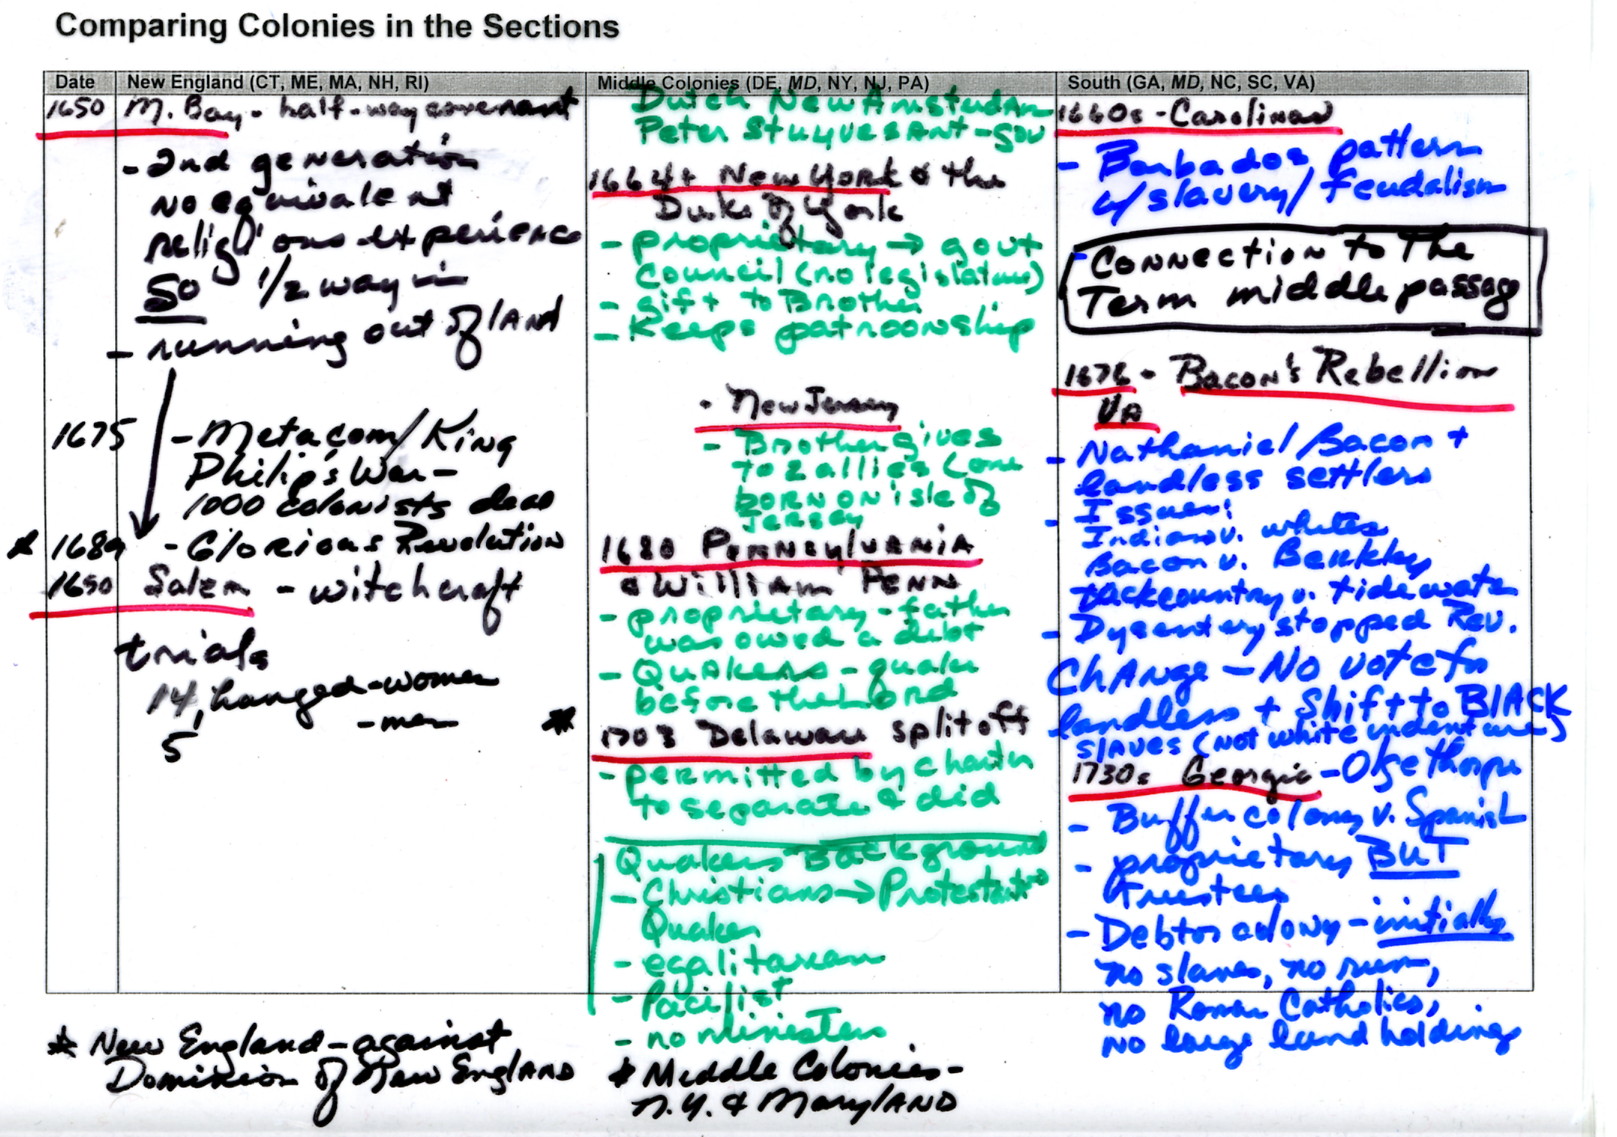 Comparing Colonies in the Sections
Date
New England (CT, ME, MA, NH, RI)
1650 M. Bay - half-way covenant
- 2nd generation
no equivalent
religious experience
So 1/2 way in
- running out of land
1675 - Metacom/King
Philip's War -
1000 colonists dead
* 1689 - Glorious Revolution
1690 Salem - witchcraft
trials
14, hanged - women
5 - men
* New England - against
Dominion of New England
Middle Colonies (DE, MD, NY, NJ, PA)
Dutch New Amsterdam
Peter Stuyvesant - gov
1664+ New York & the
Duke of York
- proprietary → gov't
council (no legislature)
- gift to Brother
- Keeps patroonship
• New Jersey
- Brother gives
to 2 allies (one
born on isle of
Jersey
1680 Pennsylvania
& William Penn
- proprietary - father
was owed a debt
- Quakers - quake
before the Lord
* 1703 Delaware split off
- permitted by charter
to separate & did
Quakers Background
- Christians → Protestants →
Quaker
- egalitarian
- Pacifist
- no ministers
* Middle Colonies -
N.Y. & Maryland
South (GA, MD, NC, SC, VA)
1660s - Carolinas
- Barbados pattern
w/slavery/feudalism
Connection to the
Term middle passage
1676 - Bacon's Rebellion
VA
- Nathaniel Bacon +
landless settlers
- Issues:
Indians v. whites
Bacon v. Berkley
backcountry v. tidewater
- Dysentery stopped Rev.
Change - No vote for
landless + Shift to BLACK
slaves (not white indenture)
1730s Georgia - Oglethorpe
- Buffer colony v. Spanish
- proprietary BUT
trustees
- Debtor colony - initially
no slaves, no rum,
no Roman Catholics,
no large land holdings